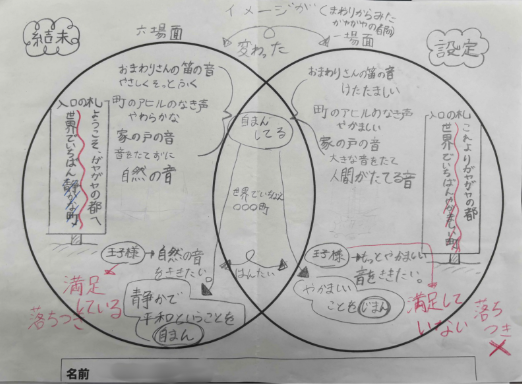 結末
六場面
イメージが
(まわりからみた
ガヤガヤの都)
変わった
一場面
設定
おまわりさんの笛の音
やさしくそっとふく
町のアヒルのなき声
やわらかな
家の戸の音
音をたてずに
自然の音
入口の札
ようこそ、ガヤガヤの都へ
世界でいちばん静かな町
王子様→自然の音
をききたい。
満足
している
落ちつき
静かで
平和ということを
自まん
自まん
してる
世界でいちばん
○○○町
はんたい
おまわりさんの笛の音
けたたましい
町のアヒルのなき声
やかましい
家の戸の音
大きな音をたて
人間がたてる音
入口の札
これよりガヤガヤの都
世界でいちばんやかましい町
王子様→もっとやかましい
音をききたい。
やかましい
ことをじまん
満足して
いない
落ち
つき
×
名前